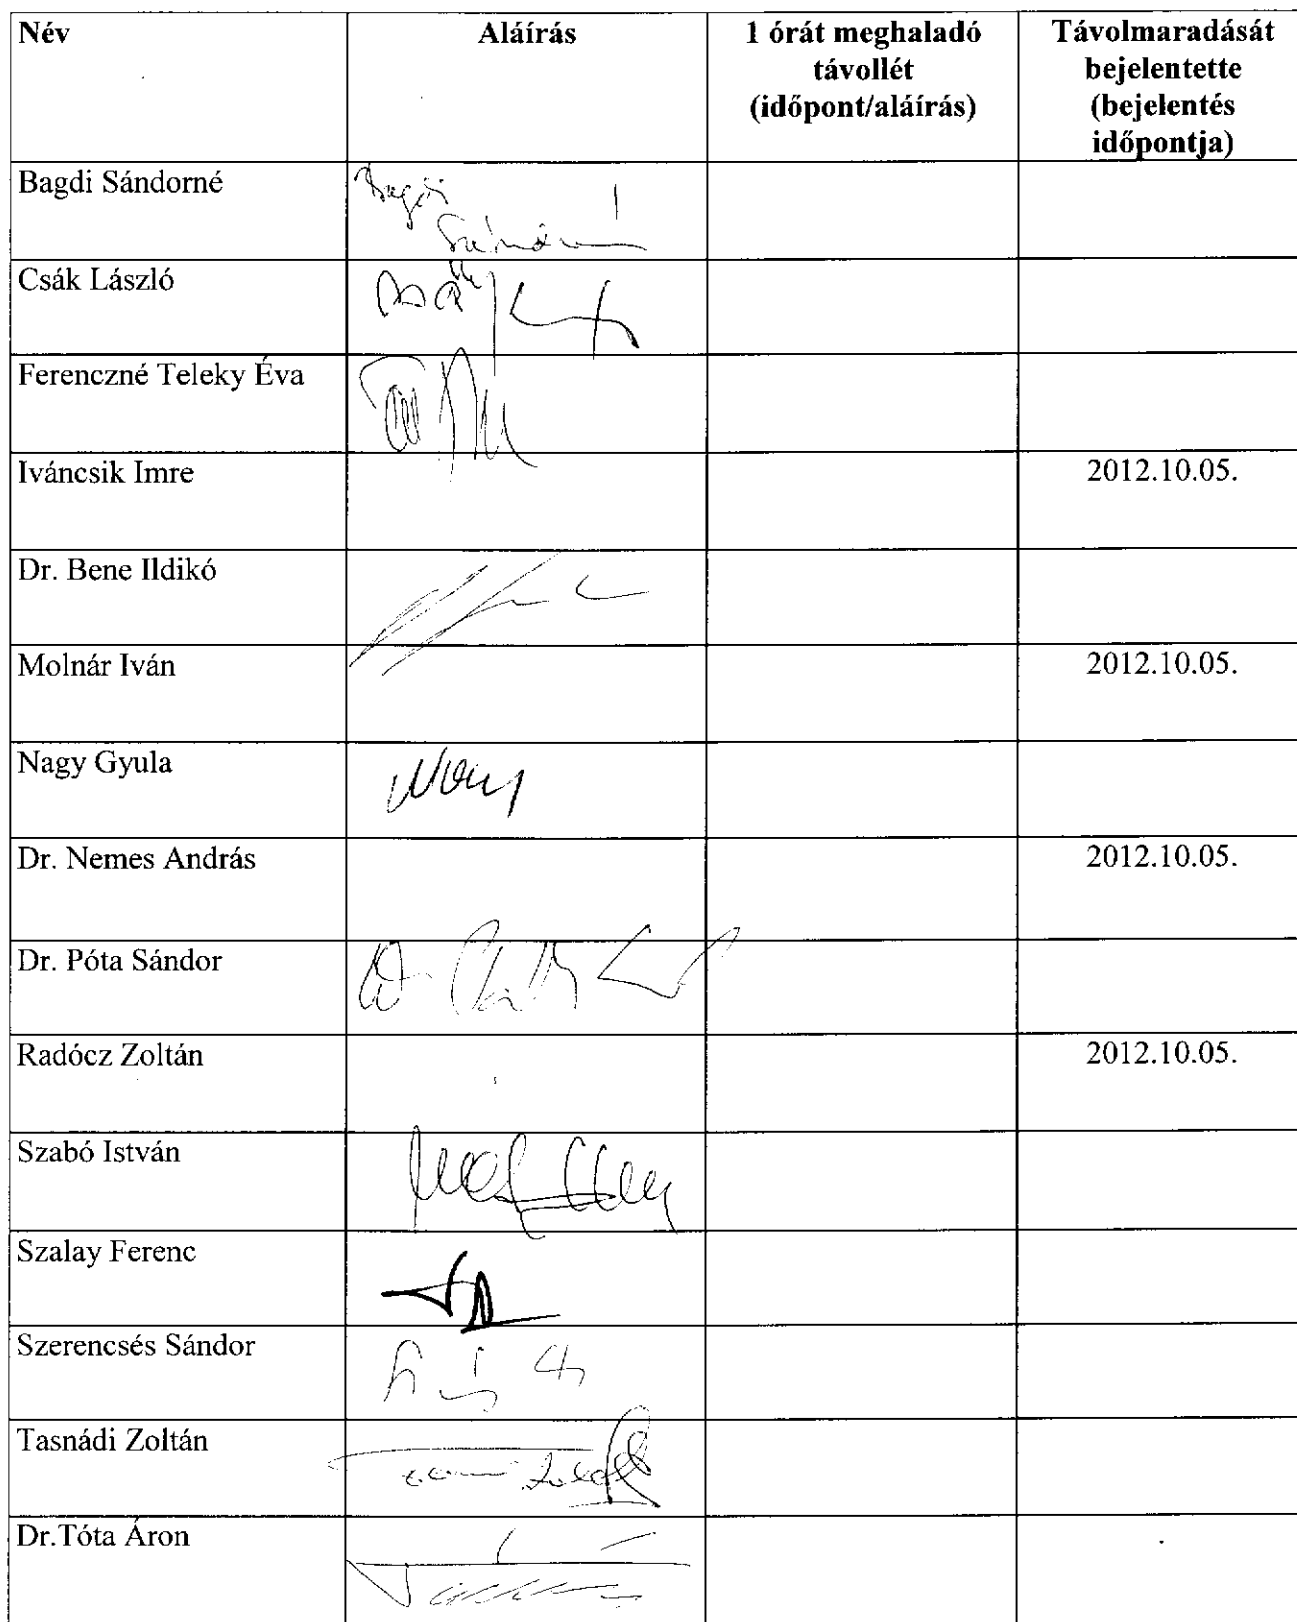 Név Aláírás 1 órát meghaladó Távolmaradását
távollét bejelentette
(időpont/aláírás) (bejelentés
időpontja)
Bagdi Sándorné
Csák László
Ferenczné Teleky Éva
Iváncsik Imre 2012.10.05.
Dr. Bene Ildikó
Molnár Iván 2012.10.05.
Nagy Gyula
Dr. Nemes András 2012.10.05.
Dr. Póta Sándor
Radócz Zoltán 2012.10.05.
Szabó István
Szalay Ferenc
Szerencsés Sándor
Tasnádi Zoltán
Dr.Tóta Áron